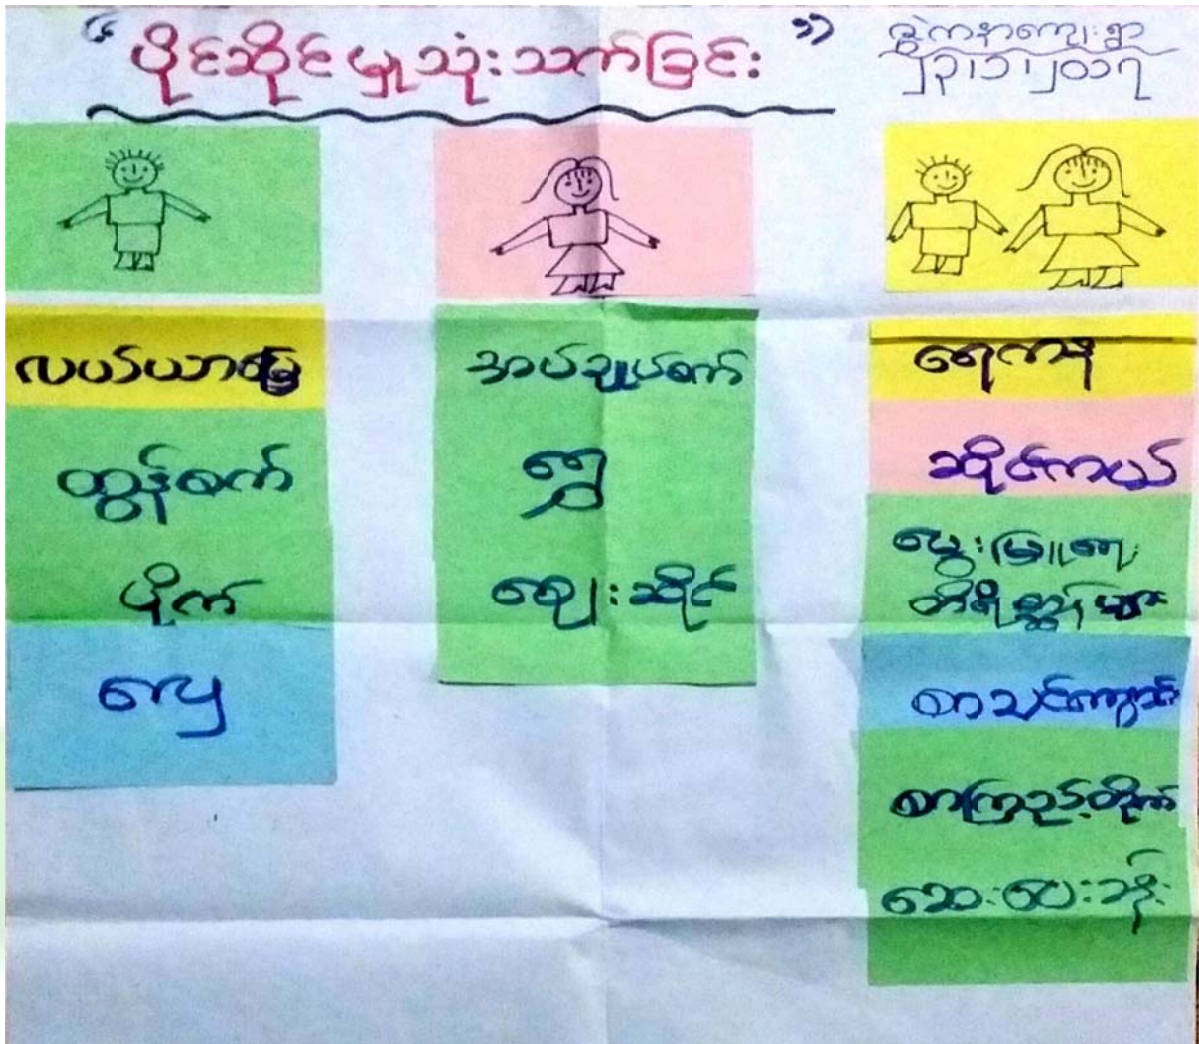 “ ပိုင်ဆိုင်မှုသုံးသက်ခြင်း ”
ဇွဲကနာကျေးရွာ
၂၃၊၁၊၂၀၁၇
လယ်ယာမြေ
ထွန်စက်
ပိုက်
လှေ
အပ်ချုပ်စက်
ရွှေ
ဈေးဆိုင်
ရေကန်
ဆိုင်ကယ်
မွေးမြူရေး
တိရိစ္ဆာန်များ
စာသင်ကျောင်း
စာကြည့်တိုက်
ဆေးပေးခန်း